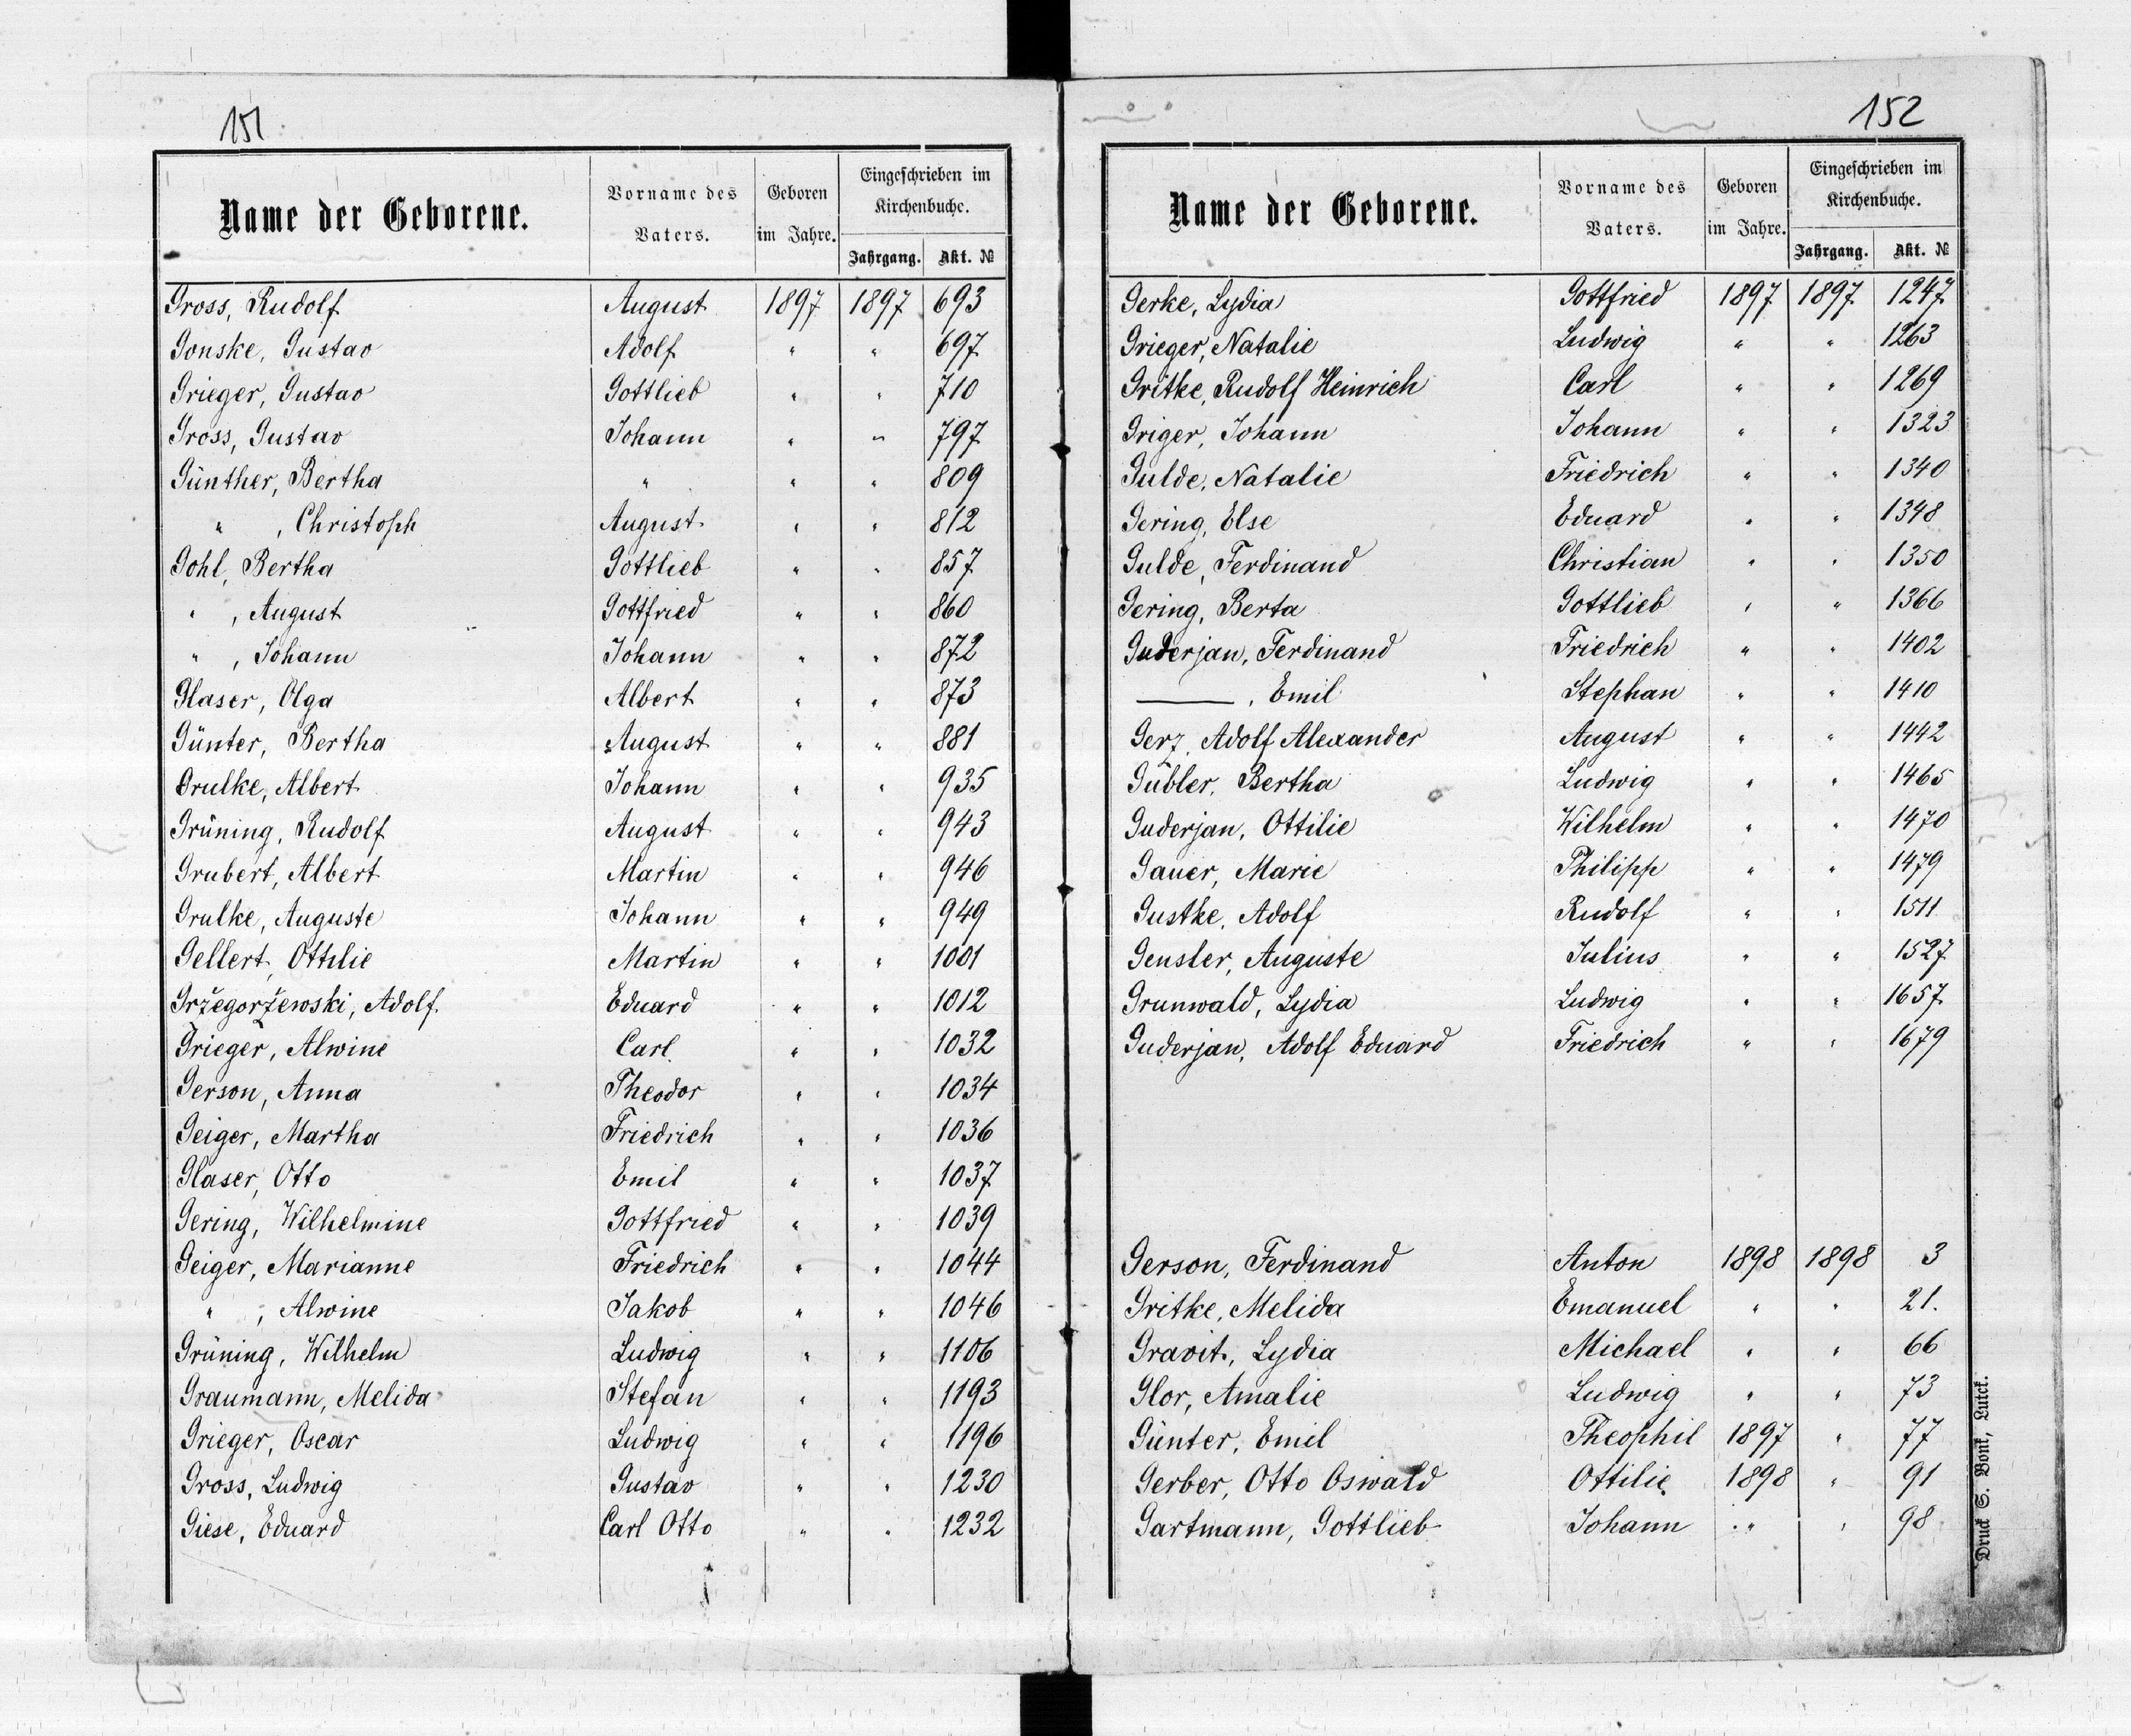 151
Name der Geborene. Vorname des Vaters. Geboren im Jahre. Eingeschrieben im Kirchenbuche. Jahrgang. Akt. №
Gross, Rudolf August 1897 1897 693
Gonske, Gustav Adolf " " 697
Grieger, Gustav Gottlieb " " 710
Gross, Gustav Johann " " 797
Günther, Bertha " " " 809
" , Christoph August " " 812
Gohl, Bertha Gottlieb " " 857
" , August Gottfried " " 860
" , Johann Johann " " 872
Glaser, Olga Albert " " 873
Günter, Bertha August " " 881
Grulke, Albert Johann " " 935
Grüning, Rudolf August " " 943
Grubert, Albert Martin " " 946
Grulke, Auguste Johann " " 949
Gellert, Ottilie Martin " " 1001
Gržegoržewski, Adolf Eduard " " 1012
Grieger, Alwine Carl " " 1032
Gerson, Anna Theodor " " 1034
Geiger, Martha Friedrich " " 1036
Glaser, Otto Emil " " 1037
Gering, Wilhelmine Gottfried " " 1039
Geiger, Marianne Friedrich " " 1044
" , Alwine Jakob " " 1046
Grüning, Wilhelm Ludwig " " 1106
Graumann, Melida Stefan " " 1193
Grieger, Oscar Ludwig " " 1196
Gross, Ludwig Gustav " " 1230
Giese, Eduard Carl Otto " " 1232
152
Name der Geborene. Vorname des Vaters. Geboren im Jahre. Eingeschrieben im Kirchenbuche. Jahrgang. Akt. №
Gerke, Lydia Gottfried 1897 1897 1247
Grieger, Natalie Ludwig " " 1263
Gritke, Rudolf Heinrich Carl " " 1269
Griger, Johann Johann " " 1323
Gulde, Natalie Friedrich " " 1340
Gering, Else Eduard " " 1348
Gulde, Ferdinand Christian " " 1350
Gering, Berta Gottlieb " " 1366
Guderjan, Ferdinand Friedrich " " 1402
——— , Emil Stephan " " 1410
Gerz, Adolf Alexander August " " 1442
Gübler, Bertha Ludwig " " 1465
Guderjan, Ottilie Wilhelm " " 1470
Gauer, Marie Philipp " " 1479
Gustke, Adolf Rudolf " " 1511
Gensler, Auguste Julius " " 1527
Grunwald, Lydia Ludwig " " 1657
Guderjan, Adolf Eduard Friedrich " " 1679
Gerson, Ferdinand Anton 1898 1898 3
Gritke, Melida Emanuel " " 21.
Gravit, Lydia Michael " " 66
Glor, Amalie Ludwig " " 73
Günter, Emil Theophil 1897 " 77
Gerber, Otto Oswald Ottilie 1898 " 91
Gartmann, Gottlieb Johann " " 98
Druck S. Bonk, Luick.